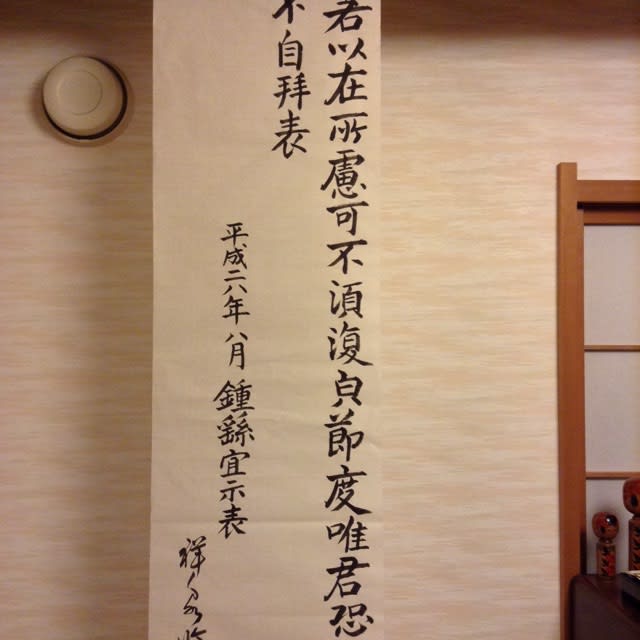 君以在所慮可不須復貞節度唯君恐
不自拜表
平成二八年八月 鍾繇宣示表
祥泉臨